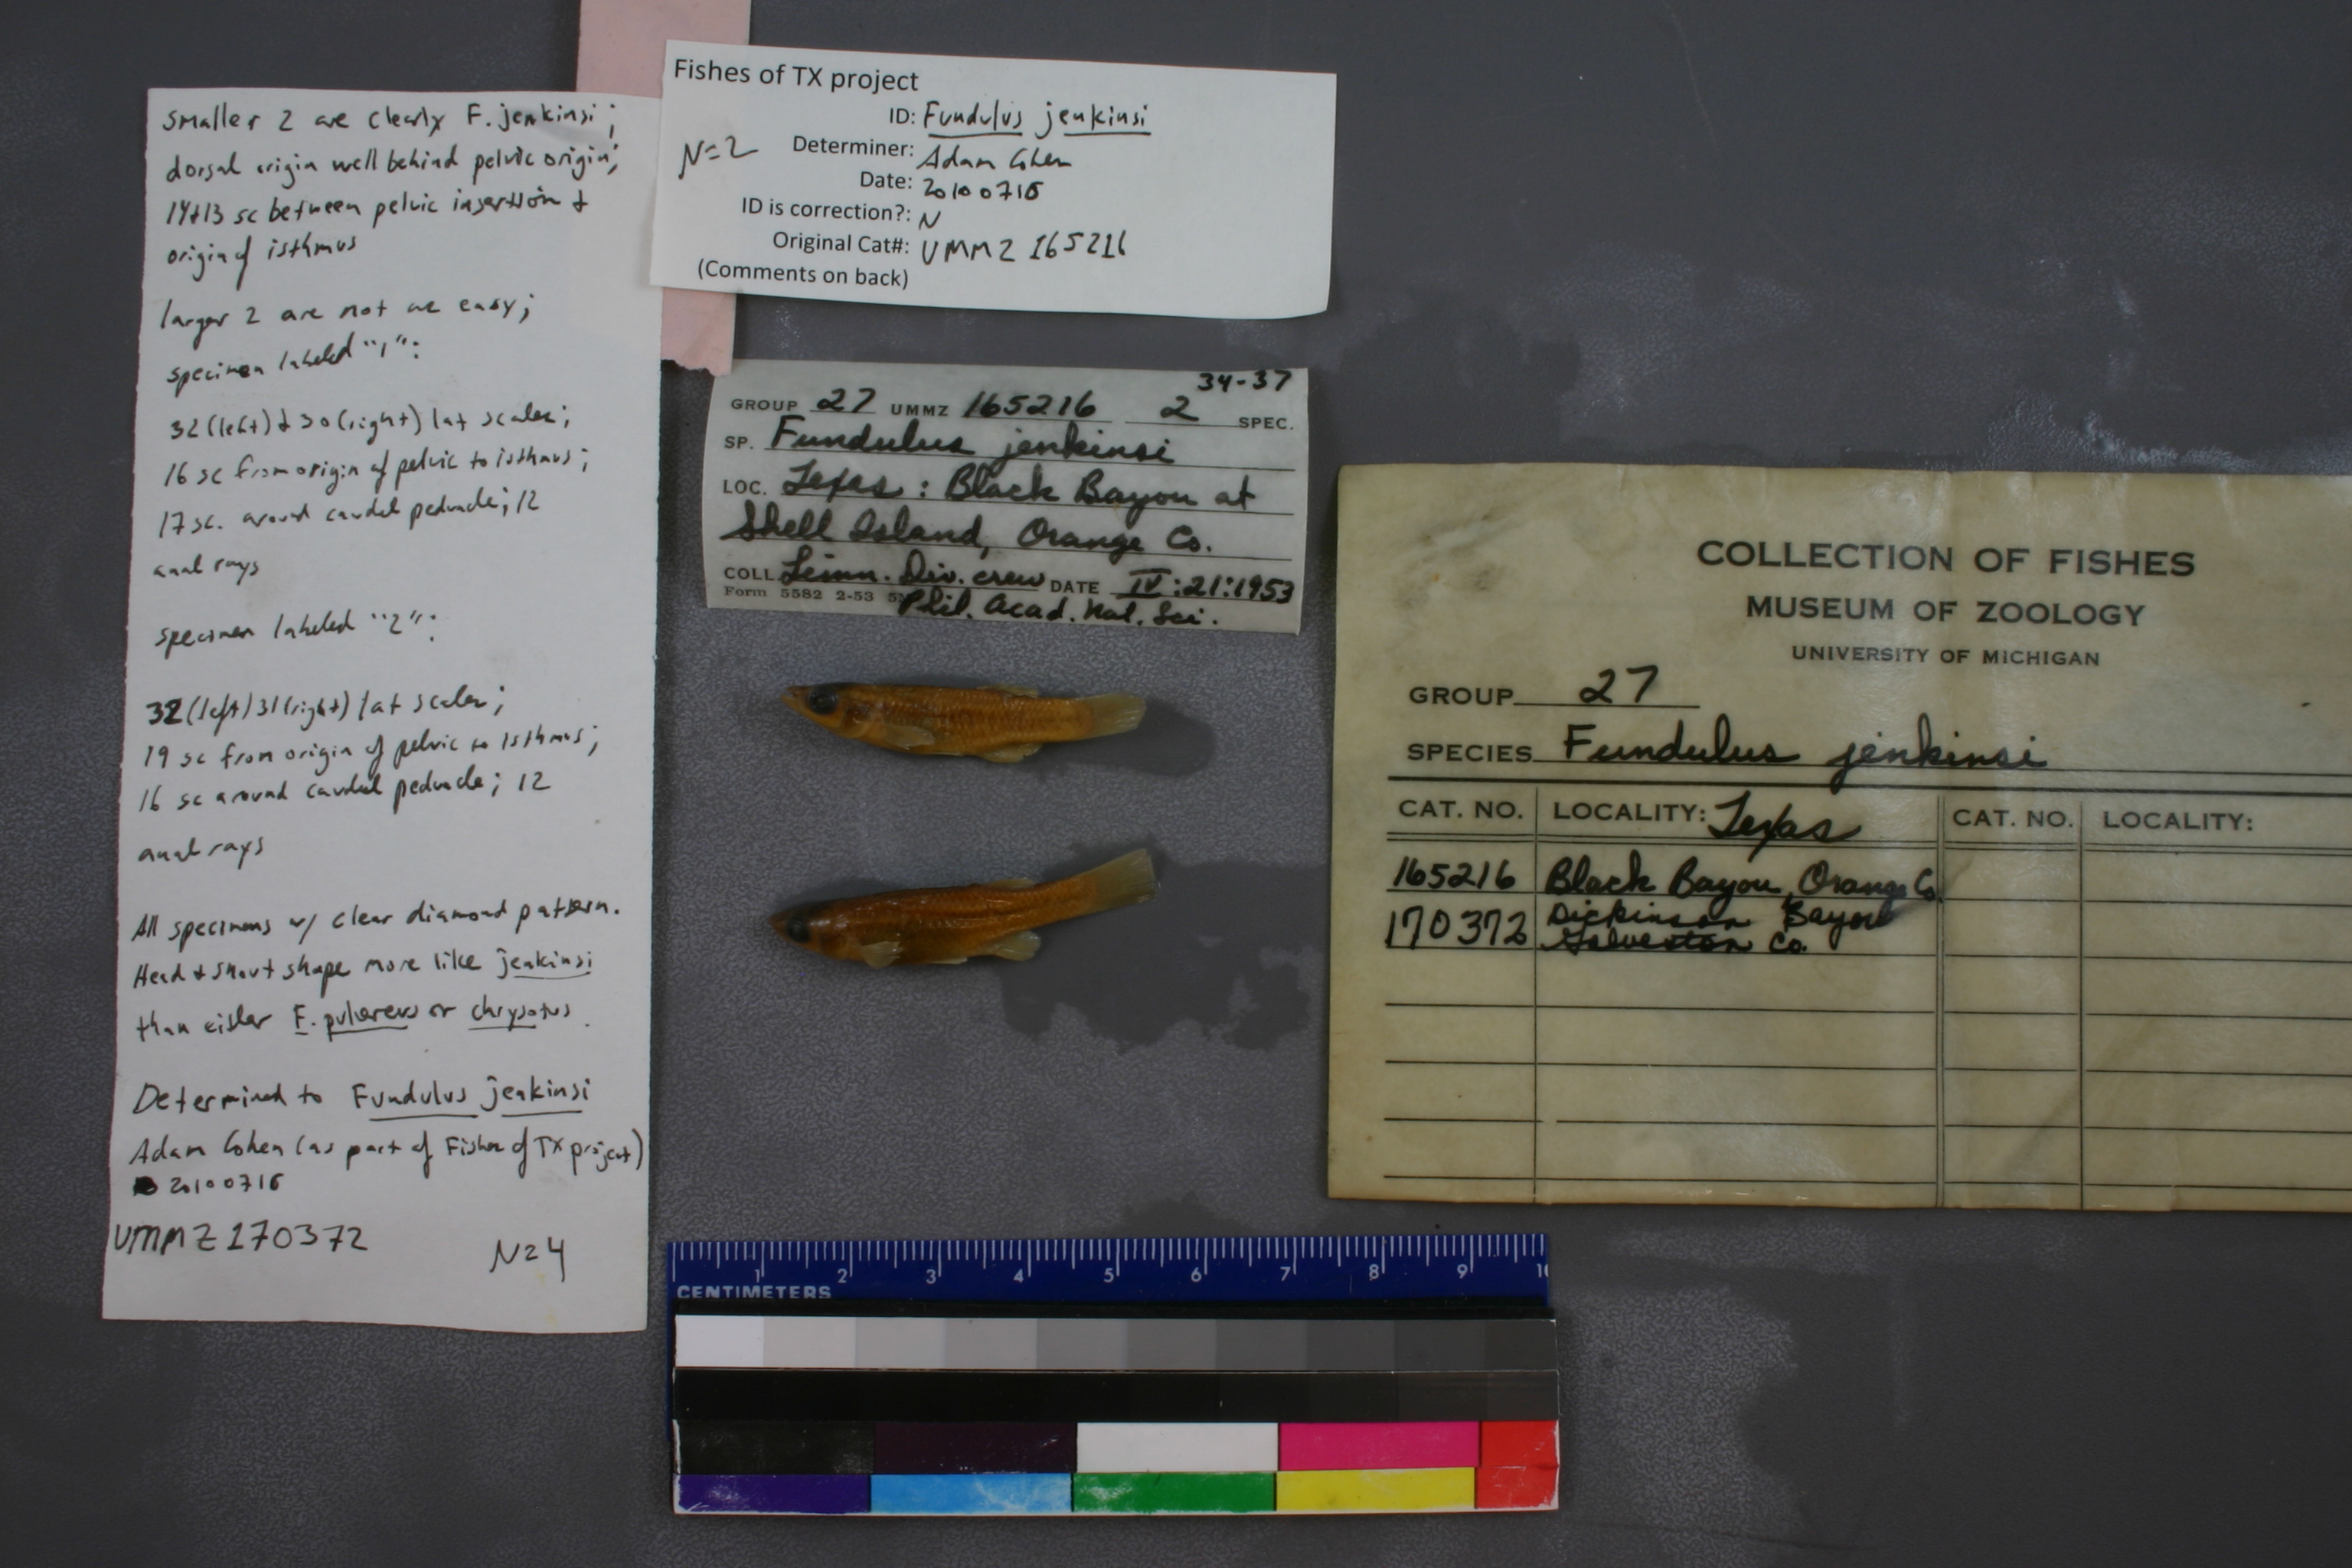 smaller 2 are clearly F. jenkinsi;
dorsal origin well behind pelvic origin;
14+13 sc between pelvic insertion &
origin of isthmus
larger 2 are not we easy;
specimen labeled "1":
32 (left) & 30 (right) lat scales;
16 sc from origin of pelvic to isthmus;
17 sc. around caudal peduncle; 12
anal rays
specimen labeled "2":
32 (left) 31 (right) lat scales;
19 sc from origin of pelvic to isthmus;
16 sc around caudal peduncle; 12
anal rays
All specimens w/ clear diamond pattern.
Head & snout shape more like jenkinsi
than either F. pulvereus or chrysotus.
Determined to Fundulus jenkinsi
Adam Cohen (as part of Fishes of TX project)
20100716
UMMZ 170372
N=4
Fishes of TX project
ID: Fundulus jenkinsi
N=2
Determiner: Adam Cohen
Date: 20100716
ID is correction?: N
Original Cat#: UMMZ 165216
(Comments on back)
34-37
GROUP 27 UMMZ 165216 2 SPEC.
SP. Fundulus jenkinsi
LOC. Texas: Black Bayou at
Shell Island, Orange Co.
COLL. Limn. Div. crew DATE IV:21:1953
Form 5582 2-53
Phil. Acad. Nat. Sci.
COLLECTION OF FISHES
MUSEUM OF ZOOLOGY
UNIVERSITY OF MICHIGAN
GROUP 27
SPECIES Fundulus jenkinsi
CAT. NO. LOCALITY: Texas CAT. NO. LOCALITY:
165216 Black Bayou, Orange Co.
170372 Dickinson Bayou
Galveston Co.
1 2 3 4 5 6 7 8 9 10
CENTIMETERS